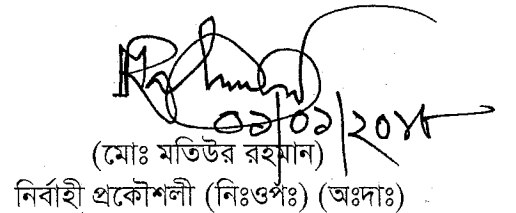 ০১/০১/২০১৮
(মোঃ মতিউর রহমান)
নির্বাহী প্রকৌশলী (নিঃওপঃ) (অঃদাঃ)